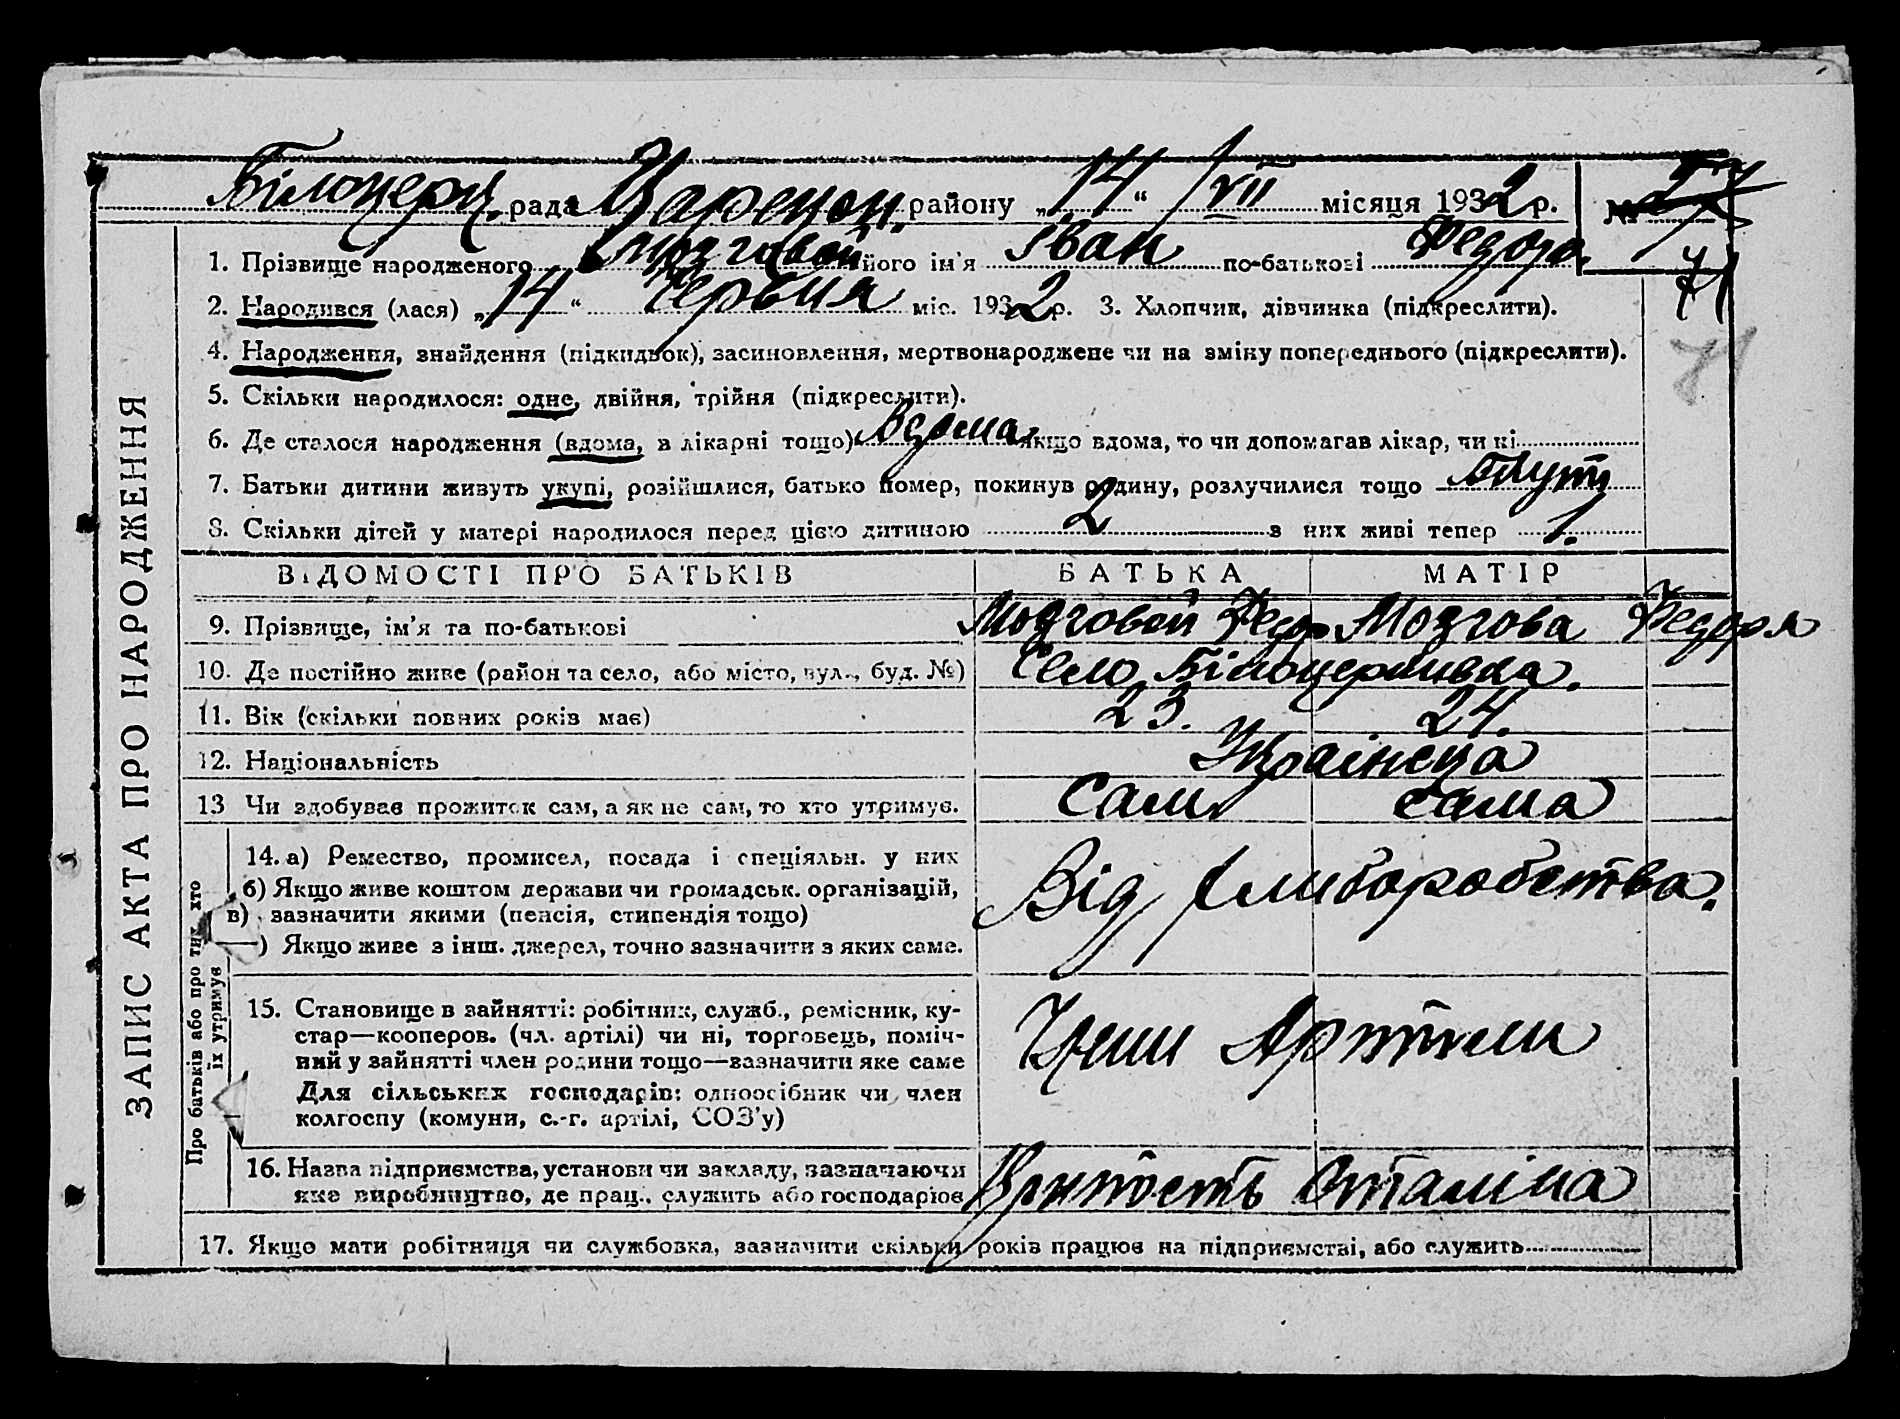 Білоцерк. рада Царечан. району „14“ VII місяця 1932 р. №
1. Прізвище народженого Мозговой його ім'я Іван по-батькові Федоро.
71
2. Народився (лася) „14“ Червня міс. 1932 р. 3. Хлопчик, дівчинка (підкреслити).
4. Народження, знайдення (підкидьок), засиновлення, мертвонароджене чи на зміну попереднього (підкреслити).
71
5. Скільки народилося: одне, двійня, трійня (підкреслити).
6. Де сталося народження (вдома, в лікарні тощо) Вдома якщо вдома, то чи допомагав лікар, чи ні
7. Батьки дитини живуть укупі, розійшлися, батько помер, покинув родину, розлучилися тощо
8. Скільки дітей у матері народилося перед цією дитиною 2 з них живі тепер 1.
ВІДОМОСТІ ПРО БАТЬКІВ БАТЬКА МАТІР
9. Прізвище, ім'я та по-батькові Мозговой Федор Мозгова Федоря
10. Де постійно живе (район та село, або місто, вул., буд. №) Село Білоцерківка.
11. Вік (скільки повних років має) 23. 24.
12. Національність Україньца
13 Чи здобуває прожиток сам, а як не сам, то хто утримує. Сам сама
14. а) Ремество, промисел, посада і спеціяльн. у них
б) Якщо живе коштом держави чи громадськ. організацій,
в) зазначити якими (пенсія, стипендія тощо) Від хліборобства.
) Якщо живе з інш. джерел, точно зазначити з яких саме.
15. Становище в зайнятті: робітник, служб., ремісник, ку-
стар—кооперов. (чл. артілі) чи ні, торговець, поміч-
ний у зайнятті член родини тощо—зазначити яке саме
Члени Артили
Для сільських господарів: одноосібник чи член
колгоспу (комуни, с.-г. артілі, СОЗ'у)
16. Назва підприємства, установи чи закладу, зазначаючи
яке виробництво, де прац., служить або господарює Крипость Сталіна
17. Якщо мати робітниця чи службовка, зазначити скільки років працює на підприємстві, або служить
ЗАПИС АКТА ПРО НАРОДЖЕННЯ
Про батьків або про тих, хто
їх утримує